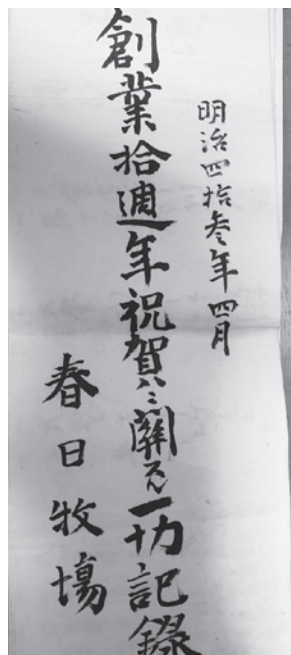 明治四拾参年四月
創業拾週年祝賀ニ關スル一切記錄
春日牧塲